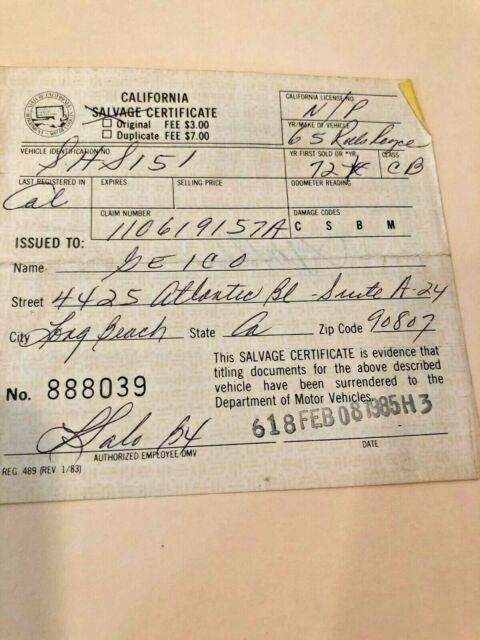 CALIFORNIA
SALVAGE CERTIFICATE
Original FEE $3.00
Duplicate FEE $7.00
CALIFORNIA LICENSE NO.
N/P
YR/MAKE OF VEHICLE
65 Rolls Royce
VEHICLE IDENTIFICATION NO.
SHS151
YR FIRST SOLD OR *YR CLASS
72 CB
LAST REGISTERED IN EXPIRES SELLING PRICE ODOMETER READING
Cal
CLAIM NUMBER DAMAGE CODES
110619157A C S B M
ISSUED TO:
Name GEICO
Street 4425 Atlantic Bl - Suite A-24
City Long Beach State Ca Zip Code 90807
This SALVAGE CERTIFICATE is evidence that
titling documents for the above described
vehicle have been surrendered to the
Department of Motor Vehicles.
No. 888039
618 FEB 08 1985 H3
AUTHORIZED EMPLOYEE/DMV DATE
REG. 489 (REV. 1/83)